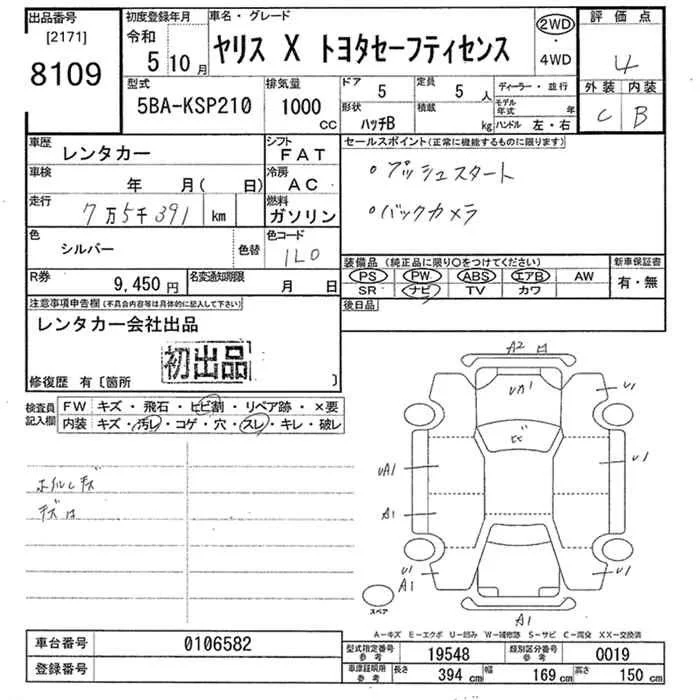 出品番号
[2171]
8109
初度登録年月
令和
5 10月
車名・グレード
ヤリス X トヨタセーフティセンス
2WD
・
4WD
評価点
4
外装 内装
C B
型式
5BA-KSP210
排気量
1000
CC
ドア
5
定員
5 人
形状
ハッチB
積載
kg
ディーラー・並行
モデル年式 年
ハンドル 左・右
車歴
レンタカー
シフト
FAT
車検
年 月( 日)
冷房
AC
走行
7万5千391 km
燃料
ガソリン
色
シルバー
色替
色コード
1L0
R券
9,450 円
名変通知期限
月 日
セールスポイント(正常に機能するものに限ります)
・プッシュスタート
・バックカメラ
装備品(純正品に限り○をつけてください)
PS PW ABS エアB AW
SR ナビ TV カワ
新車保証書
有・無
後日品
注意事項申告欄(不具合内容等は具体的に記入して下さい)
レンタカー会社出品
初出品
修復歴 有〔箇所 〕
検査員
記入欄
FW キズ・飛石・ヒビ割・リペア跡・×要
内装 キズ・汚レ・コゲ・穴・スレ・キレ・破レ
キズは
A2
UA1
U1
UA1
U1
A1
U1
A1
U1
A1
スペア
A-キズ E-エクボ U-凹み W-補修跡 S-サビ C-腐食 XX-交換済
車台番号
0106582
登録番号
型式指定番号
参考
19548
類別区分番号
参考
0019
車庫証明用
参考
長さ
394 cm
幅
169 cm
高さ
150 cm